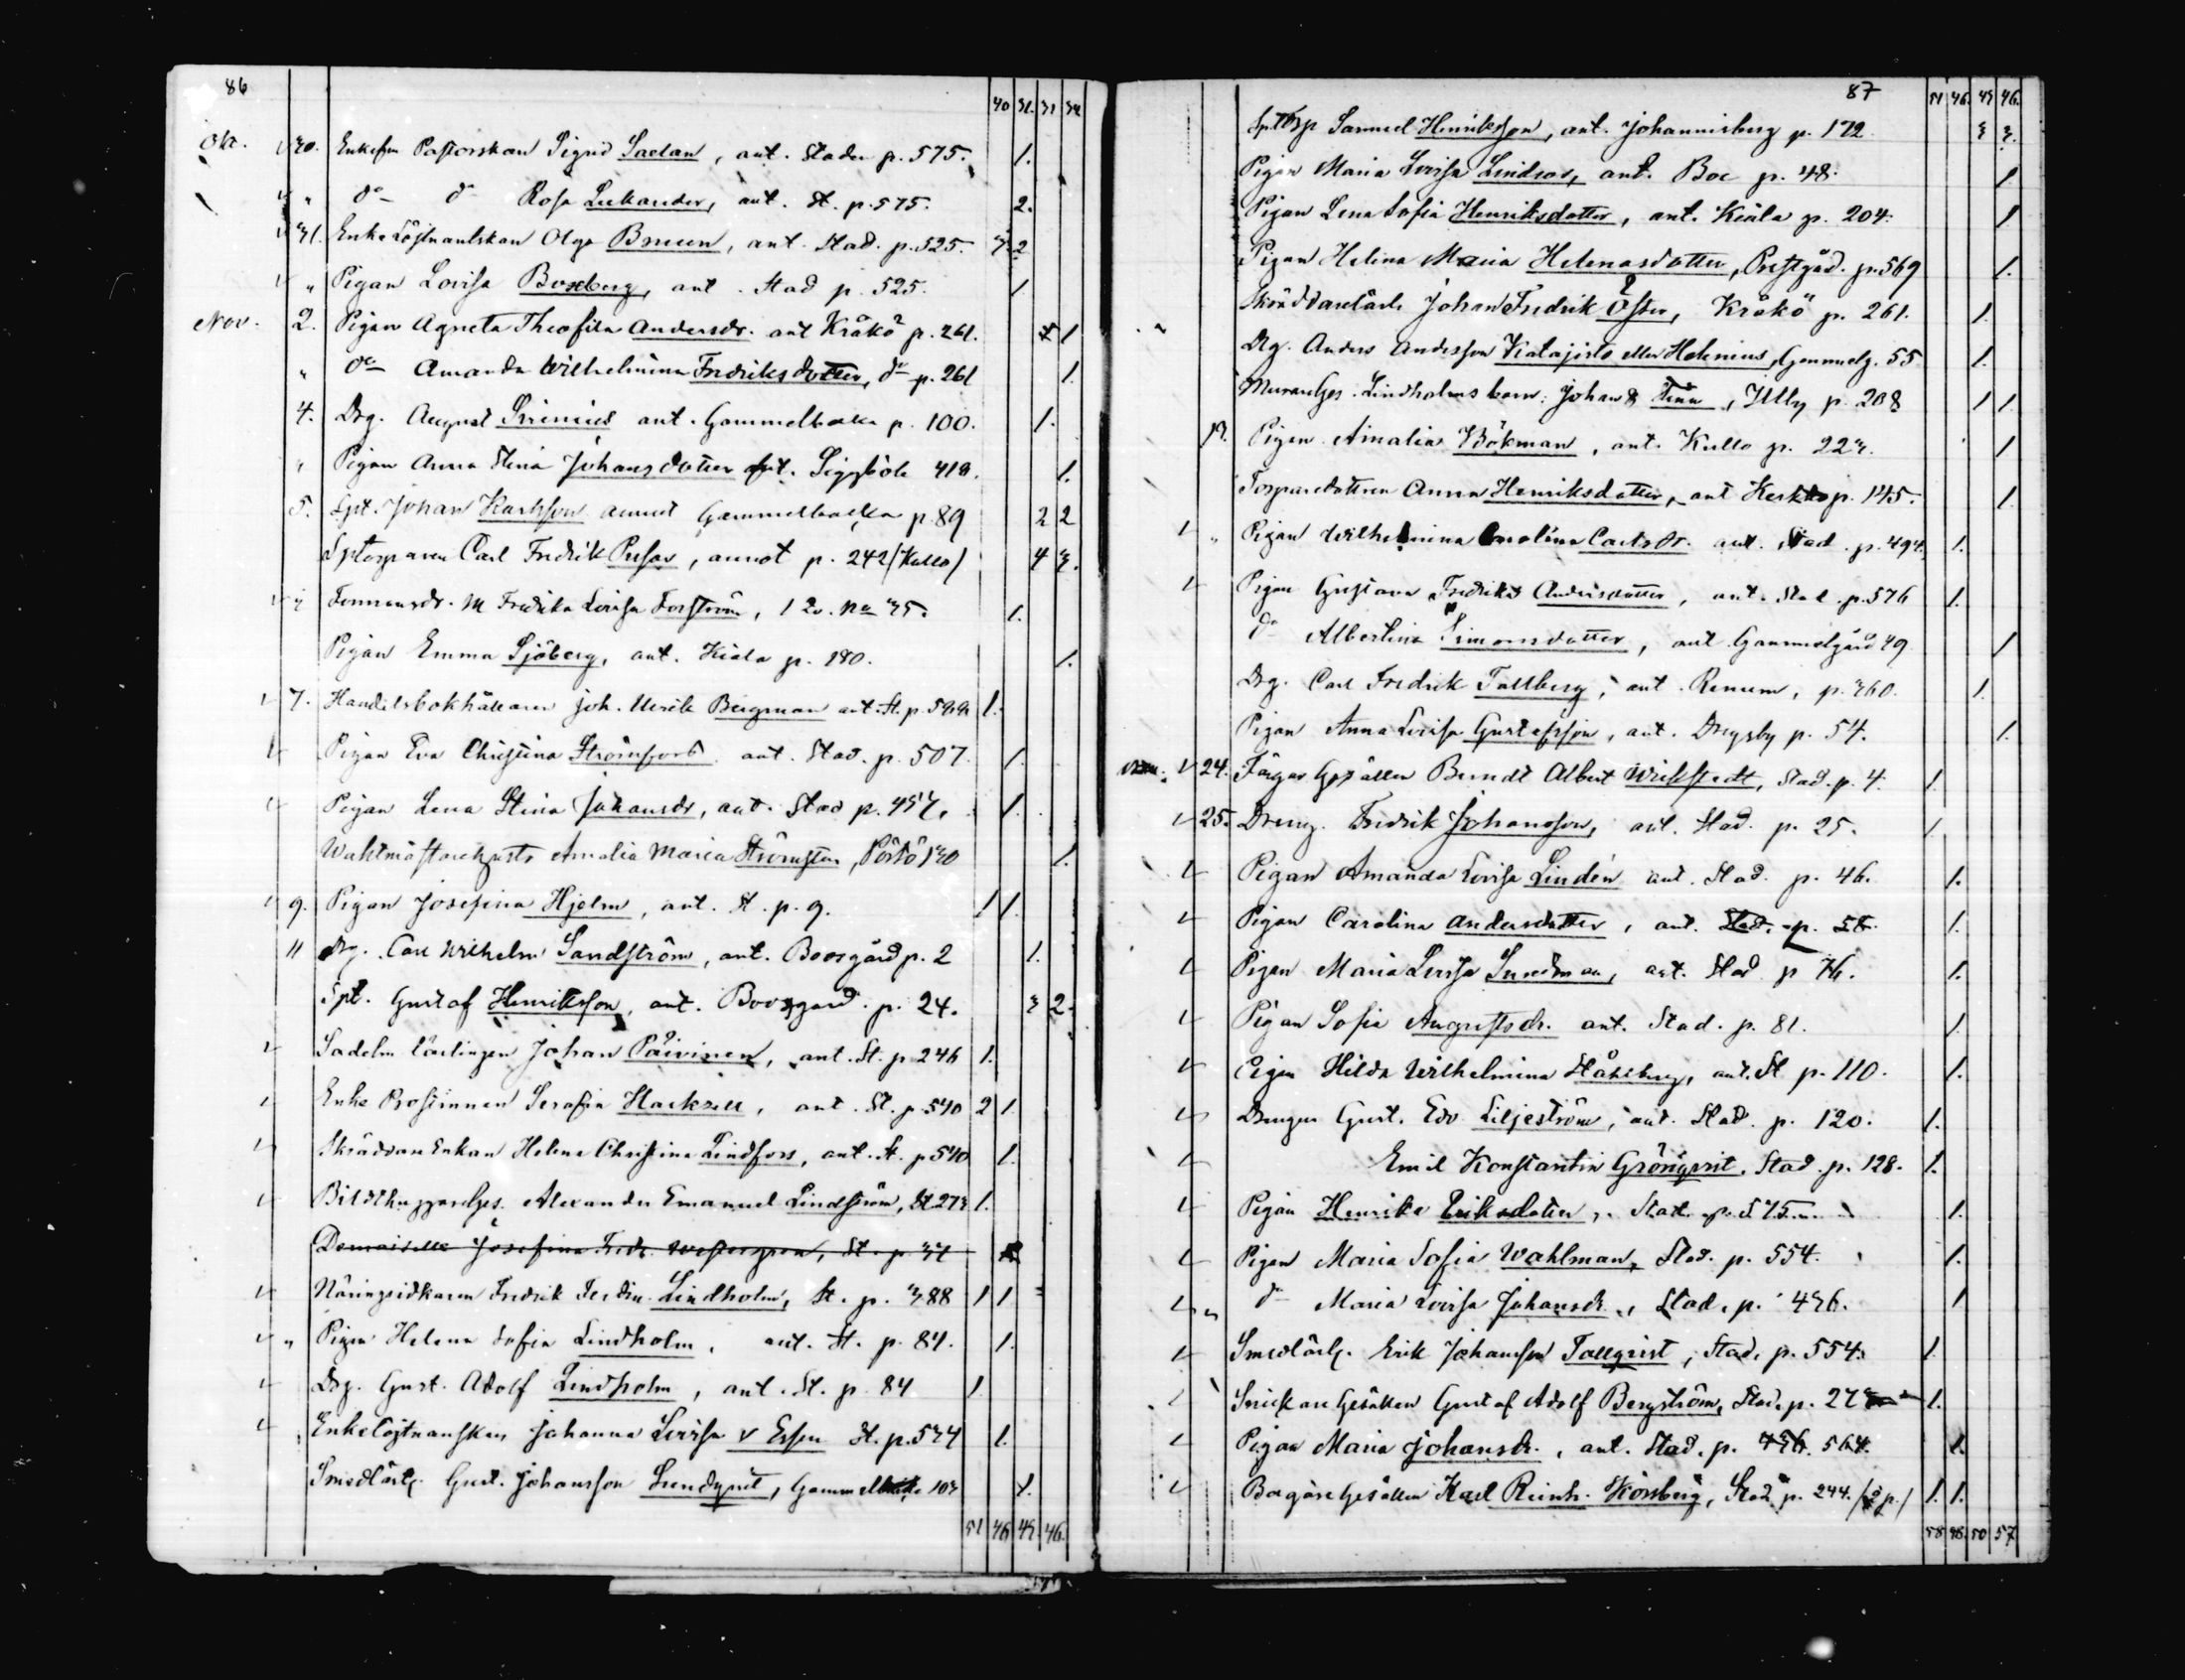 86
40 31. 31 34
Okt. 30. Enkefru Pastorskan Sigrid Saelan, ant. Staden p. 575. 1.
" do do Rosa Lukander, ant. St. p. 575. 2.
31. Enke Löjtnantskan Olga Bruun, ant. Stad. p. 525. 3 2
" Pigan Lovisa Boxberg, ant. Stad p. 525. 1
Nov. 2. Pigan Agneta Theofila Andersdr. ant Kråkö p. 261. 1
" do Amanda Wilhelmina Fredriksdotter, do p. 261 1.
4. Drg. August Grenius ant. Gammelbacka p. 100. 1.
" Pigan Anna Stina Johansdotter ant. Siggböle 418. 1.
5. Spt. Johan Karlsson annot Gammelbacka p. 89 2 2
Sptorparen Carl Fredrik Pusas, annot p. 242 (Kullo) 4 3.
Fredrika Lovisa Forström, 1 No 35. 1.
Pigan Emma Sjöberg, ant. Kiala p. 180. 1.
7. Handelsbokhållaren Joh. Ulrik Bergman ant. St. p. 1.
Pigan Eva Christina Strömfors ant. Stad. p. 507. 1.
Pigan Lena Stina Johansdr, ant. Stad p. 457. 1.
Amalia Maria Strömsten, 130 1.
9. Pigan Josefina Hjelm, ant. St. p. 9. 1 1.
11 Drg. Carl Wilhelm Sandström, ant. Boesgård p. 2 1.
Spt. Gustaf Henriksson, ant. Boesgård p. 24. 3 2.
Sadelm lärlingen Johan Päivinen, ant. St. p. 246 1.
Enke Prostinnan Serafia Hackzell, ant. St. p. 540 2 1.
Skräddare Enkan Helena Christina Lindfors, ant. St. p 540 1.
Bildthuggareges. Alexander Emanuel Lindström, St. 273 1.
Demoiselle Josefina Fredr. Westergren, St. p. 34
Näringsidkaren Fredrik Ferdin. Lindholm, St. p. 388 1 1
" Pigan Helena Sofia Lindholm, ant. St. p. 84. 1.
Drg. Gust. Adolf Lindholm, ant. St. p. 84 1
Enke Löjtnantskan Johanna Lovisa v Essen St. p. 534 1.
Smedlärl. Gust. Johansson Lundqvist, Gammelbacka 103 1.
51 46 49. 46.
87
51 46. 49 46.
Samuel Henriksson, ant. Johannisberg p. 172 3 3.
Pigan Maria Lovisa Lindroos, ant. Boe p. 48. 1.
Pigan Lena Sofia Henriksdotter, ant. Kiala p. 204. 1
Pigan Helena Maria Helenasdotter, Prestgård. p. 569 1.
Skräddarelärl. Johan Fredrik Öster, Kråkö p. 261. 1.
Drg. Anders Andersson Katajisto eller Helenius, Gammelg. 55 1.
Lindholms barn: Johan & Fina, Illby p. 208 1 1
13. Pigan Amalia Bökman, ant. Kullo p. 223. 1
Torparedottren Anna Henriksdotter, ant Kerkko p. 145. 1
" Pigan Wilhelmina Carolina Carlsdr. ant. Stad. p. 494. 1.
Pigan Gustava Fredrika Andersdotter, ant. Stad. p. 576 1.
do Albertina Simonsdotter, ant Gammelgård 49 1
Drg. Carl Fredrik Tallberg, ant. Renum, p. 360. 1.
Pigan Anna Lovisa Gustafsson, ant. Drägsby p. 54. 1.
24. Färgar Gesällen Berndt Albert Wickstedt, Stad. p. 4. 1.
25. Dreng. Fredrik Johansson, ant. Stad. p. 25. 1
Pigan Amanda Lovisa Lindén ant. Stad. p. 46. 1.
Pigan Carolina Andersdotter, ant. Stad. p. 58. 1.
Pigan Maria Lovisa Sundman, ant. Stad p 76. 1.
Pigan Sofia Augustsdr. ant. Stad. p. 81. 1.
Pigan Hilda Wilhelmina Ståhlberg, ant. St p. 110. 1.
Drengen Gust. Edv Liljeström, ant. Stad. p. 120. 1.
Emil Konstantin Grönqvist, Stad. p. 128. 1.
Pigan Henrika Eriksdotter, Stad. p. 575. 1.
Pigan Maria Sofia Wahlman, Stad. p. 554. 1.
" do Maria Lovisa Johansdr., Stad. p. 436. 1
Smedlärl. Erik Johansson Tallqvist, Stad. p. 554. 1
Snickare Gesällen Gustaf Adolf Bergström, Stad. p. 27 1.
Pigan Maria Johansdr., ant. Stad. p. 436. 564. 1.
Bagare Gesällen Karl Reinh. Korsberg, Stad. p. 244. 1. 1.
58 98. 50 57